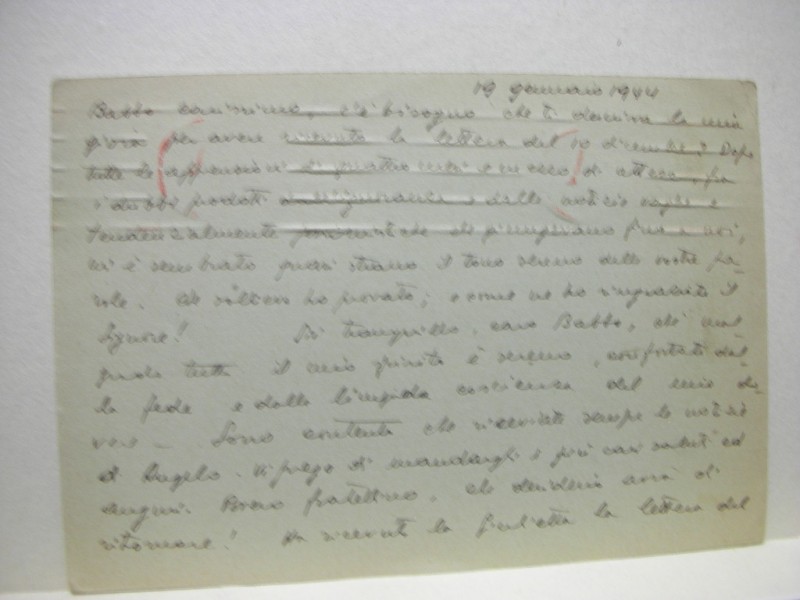 19 gennaio 1944
Babbo carissimo, c'è bisogno che ti descriva la mia
gioia per avere ricevuto la lettera del 10 dicembre? Dopo
tutte le apprensioni di quattro mesi e mezzo di attesa, fra
i dubbi prodotti dall'ignoranza e dalle notizie vaghe e
tendenzialmente pessimistiche che giungevano fino a noi,
mi è sembrato quasi strano il tono sereno delle vostre pa-
role. Che sollievo ho provato, e come ne ho ringraziato il
Signore! Sii tranquillo, caro Babbo, chè mal-
grado tutto il mio spirito è sereno, confortato dal-
la fede e dalla limpida coscienza del mio do-
vere - Sono contento che riceviate sempre le notizie
di Angelo. Vi prego di mandargli i più cari saluti ed
auguri. Bravo fratellino, che desiderio avrà di
ritornare! Ha ricevuto la Giulietta la lettera del